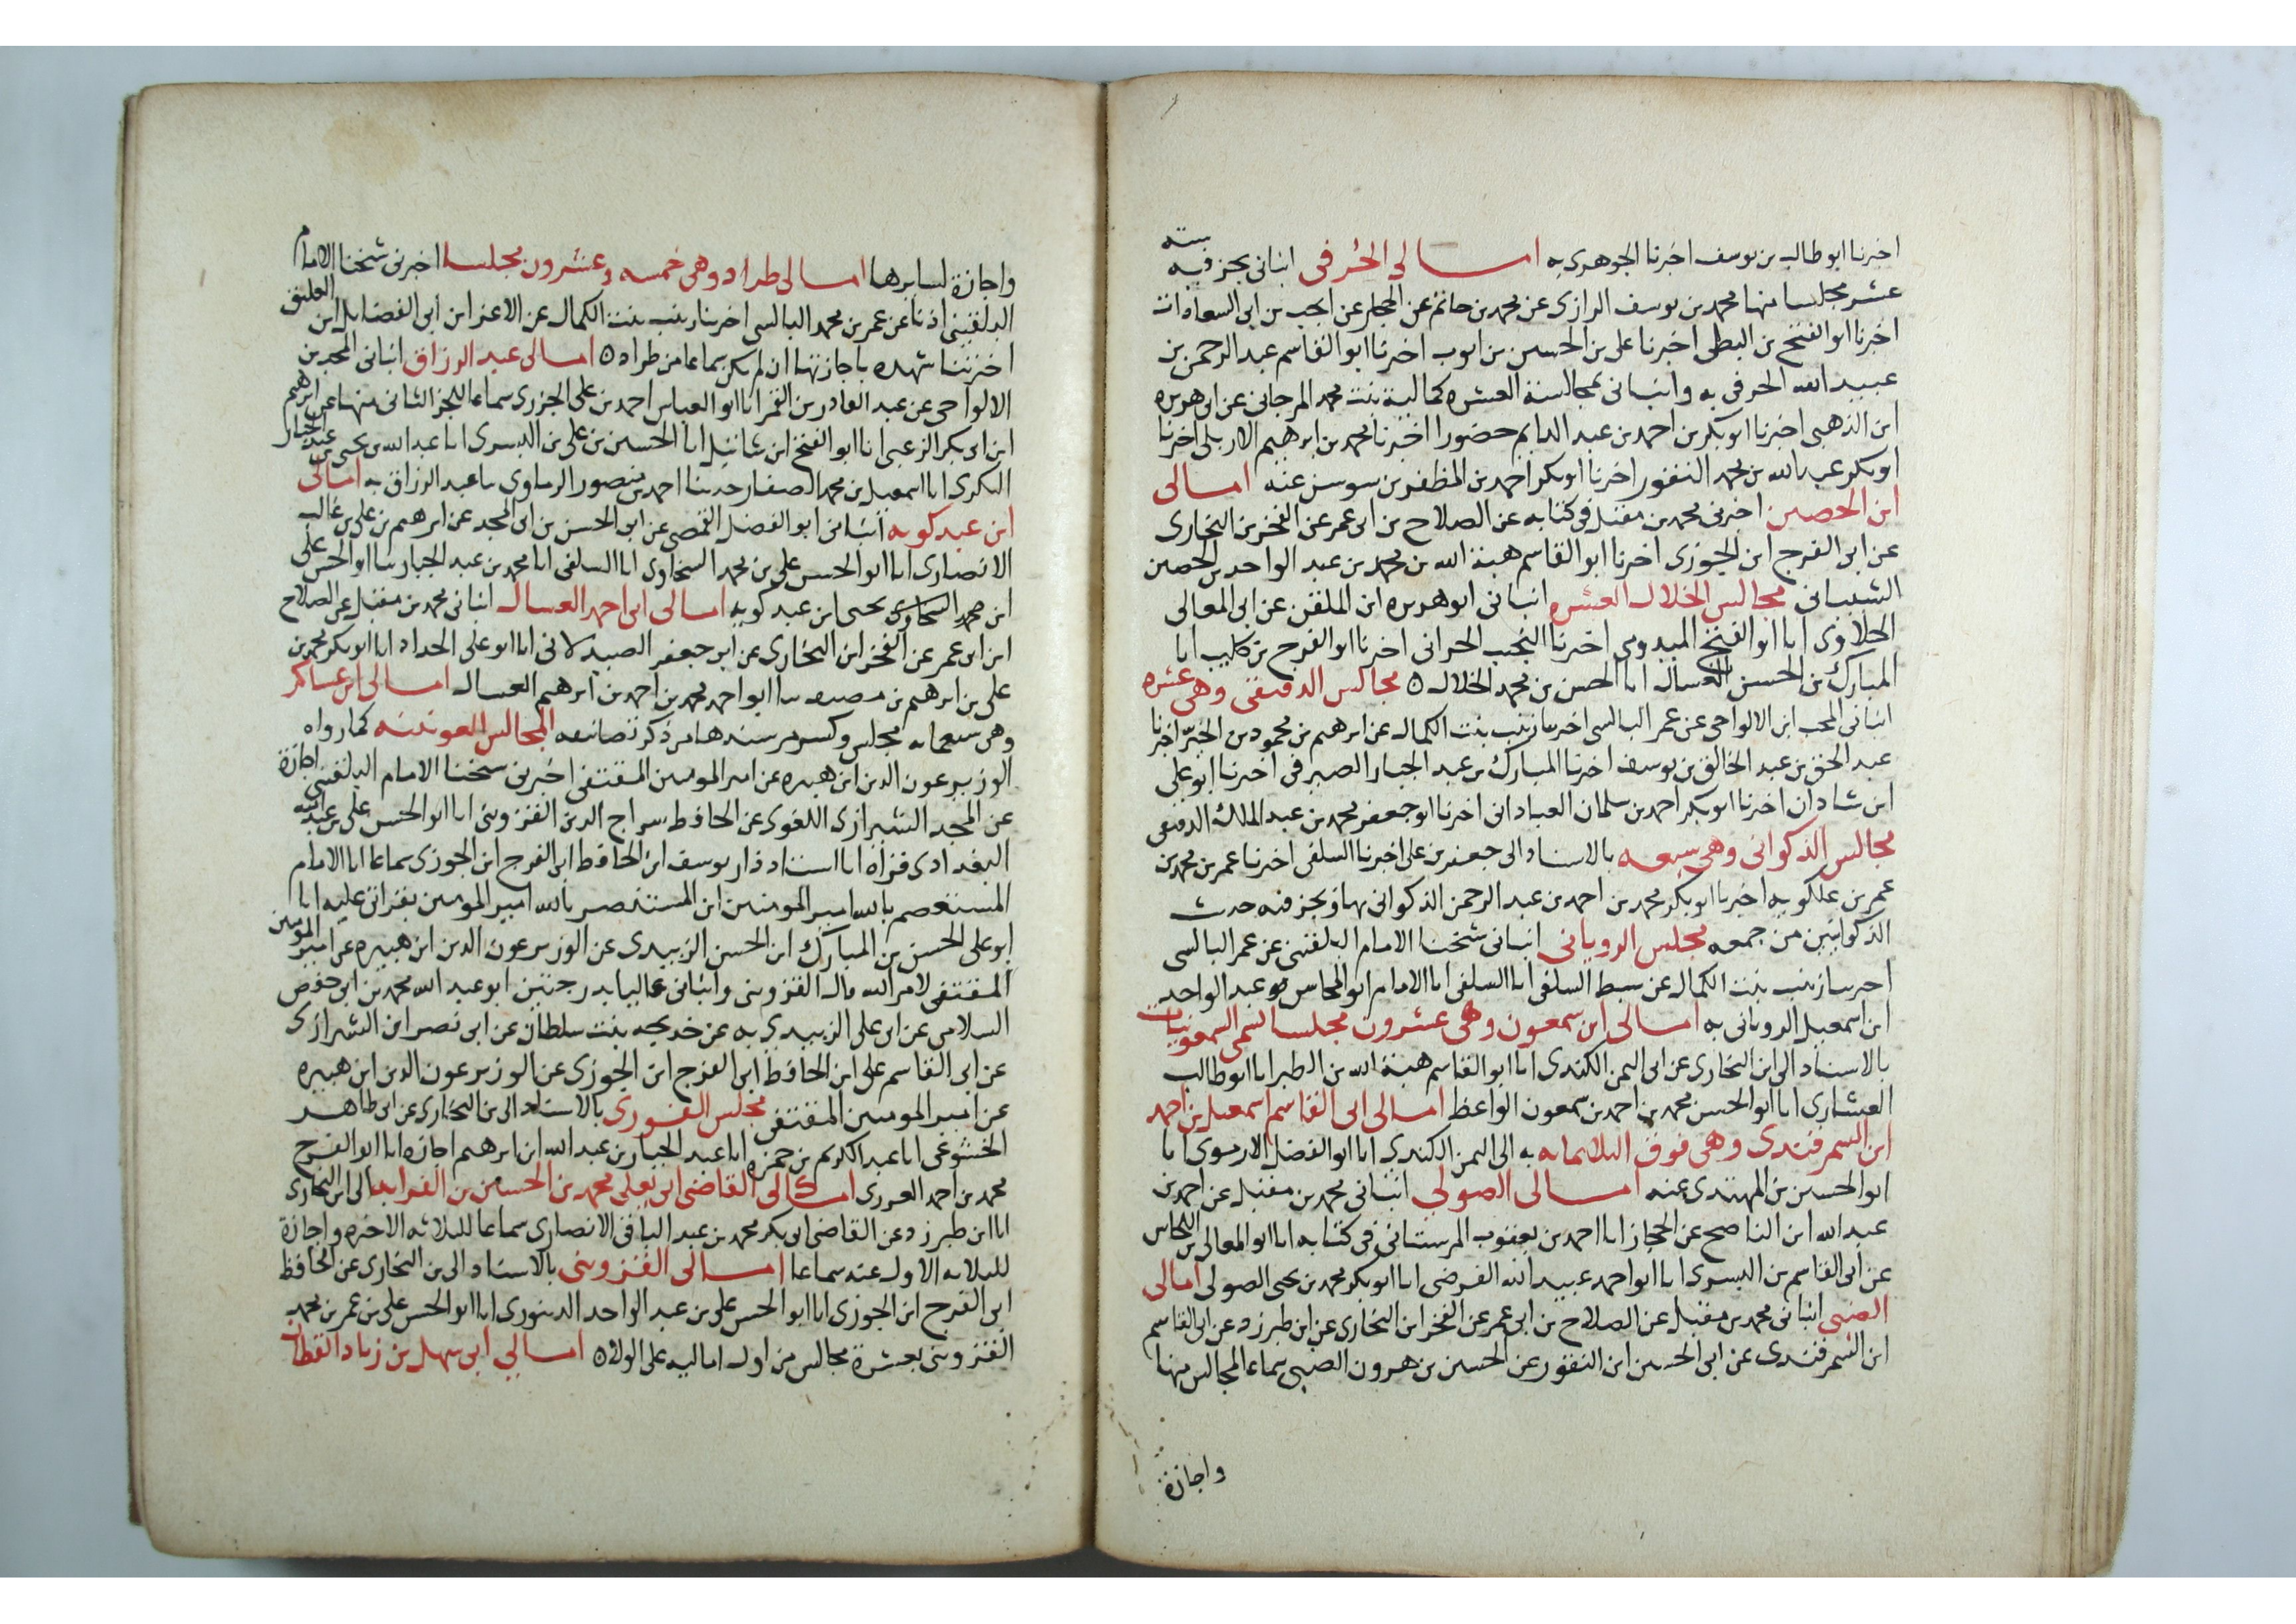 اخبرنا ابو طالب بن يوسف اخبرنا الجوهرى به امالى الحرفى انبانى بجز فيه ستة
عشر مجلسا منها محمد بن يوسف الرازى عن محمد بن حاتم عن الحجار عن انجب بن ابى السعادات
اخبرنا ابو الفتح بن البطى اخبرنا على بن الحسين بن ايوب اخبرنا ابو القاسم عبد الرحمن بن
عبيد الله الحرفى به وانبانى بمجالسه العشره كمالية بنت محمد المرجانى عن ابى هريره
ابن الذهبى اخبرنا ابو بكر بن احمد بن عبد الدايم حضورا اخبرنا محمد بن ابرهيم الاربلى اخبرنا
ابو بكر عبد الله بن محمد النقور اخبرنا ابو بكر احمد بن المظفر بن سوسن عنه امالى
ابن الحصين اخبرنى محمد بن مقبل فى كتابه عن الصلاح بن ابى عمر عن الفخر بن البخارى
عن ابى الفرج ابن الجوزى اخبرنا ابو القاسم هبة الله بن محمد بن عبد الواحد بن الحصين
الشيبانى مجالس الخلال العشره انبانى ابو هريره ابن الملقن عن ابى المعالى
الحلاوى انا ابو الفتح الميدومى اخبرنا النجيب الحرانى اخبرنا ابو الفرج بن كليب انا
المبارك بن الحسين الغسال انا الحسن بن محمد الخلال ٥ مجالس الدقيقى وهى عشره
انبانى المحب ابن الالواحى عن عمر البالسى اخبرتنا زينب بنت الكمال عن ابرهيم بن محمود بن الخير اخبرنا
عبد الحق بن عبد الخالق بن يوسف اخبرنا المبارك بن عبد الجبار الصيرفى اخبرنا ابو على
ابن شاذان اخبرنا ابو بكر احمد بن سلمان العبادانى اخبرنا ابو جعفر محمد بن عبد الملك الدقيقى
مجالس الذكوانى وهى سبعه بالاسناد الى جعفر بن على اخبرنا السلفى اخبرنا عمر بن محمد بن
عمر بن علكويه اخبرنا ابو بكر محمد بن احمد بن عبد الرحمن الذكوانى بها وبجز فيه حديث
الذكوانيين من جمعه مجلس الرويانى انبانى شيخنا الامام البلقينى عن عمر البالسى
اخبرتنا زينب بنت الكمال عن سبط السلفى انا السلفى انا الامام ابو المحاسن عبد الواحد
ابن اسمعيل الرويانى به امالى ابن سمعون وهى عشرون مجلسا تسمى السمعونيات
بالاسناد الى ابن البخارى عن ابى اليمن الكندى انا ابو القاسم هبة الله بن الطبر انا ابو طالب
العشارى انا ابو الحسن محمد بن احمد بن سمعون الواعظ امالى ابى القاسم اسمعيل بن احمد
ابن السمرقندى وهى فوق الثلاثمايه به الى اليمن الكندى انا ابو الفضل الارموى انا
ابو الحسين بن المهتدى عنه امالى الصولى انبانى محمد بن مقبل عن احمد بن
عبد الله ابن الناصح عن الحجار انا احمد بن يعقوب المرستانى فى كتابه انا ابو المعالى بن النحاس
عن ابى القاسم بن البسرى انا ابو احمد عبيد الله الفرضى انا ابو بكر محمد بن يحيى الصولى امالى
الضبى انبانى محمد بن مقبل عن الصلاح بن ابى عمر عن الفخر ابن البخارى عن ابن طبرزد عن ابى القاسم
ابن السمرقندى عن ابى الحسين ابن النقور عن الحسين بن هرون الضبى سماعا لمجالس منها
واجازة
واجازة لسايرها امالى طراد وهى خمسه وعشرون مجلسا اخبرنى شيخنا الامام
البلقينى اذنا عن عمر بن محمد البالسى اخبرتنا زينب بنت الكمال عن الاعز ابن ابى الفضايل ابن العليق
اخبرتنا شهده باجازتها ان لم يكن سماعا من طراد ٥ امالى عبد الرزاق انبانى المحب بن
الالواحى عن عبد القادر بن القمر انا ابو العباس احمد بن على الجزرى سماعا للجز الثانى منها عن ابرهيم
ابن ابى بكر الزعبى انا ابو الفتح ابن شاتيل انا الحسين بن على بن البسرى انا عبد الله بن يحيى بن عبد الجبار
السكرى انا اسمعيل بن محمد الصفار حدثنا احمد بن منصور الرمادى نا عبد الرزاق به امالى
ابن عبد كويه انبانى ابو الفضل القمصى عن ابى الحسن بن ابى المجد عن ابرهيم بن على بن غالب
الانصارى انا ابو الحسن على بن محمد السخاوى انا السلفى انا محمد بن عبد الجبار نا ابو الحسن على
ابن يحيى ابن عبد كويه امالى ابى احمد العسال انبانى محمد بن مقبل عن الصلاح
ابن ابى عمر عن الفخر ابن البخارى عن ابى جعفر الصيدلانى انا ابو على الحداد انا ابو بكر محمد بن
على بن ابرهيم بن مصعب نا ابو احمد محمد بن احمد بن ابرهيم العسال امالى ابن عساكر
وهى مجلس سندها من ذكر تصانيفه المجالس العونيه كما رواه
الوزير عون الدين ابن هبيره عن امير المومنين المقتفى اخبرنى شيخنا الامام البلقينى اجازة
عن المجد الشيرازى اللغوى عن الحافظ سراج الدين القزوينى انا ابو الحسن على بن عبد الله
البغدادى قراة انا استاد دار يوسف ابن الحافظ ابى الفرج ابن الجوزى سماعا انا الامام
المستعصم بالله امير المومنين ابن المستنصر بالله امير المومنين بقراتى عليه انا
ابو على الحسن بن المبارك ابن الحسن الزبيدى عن الوزير عون الدين ابن هبيره عن امير المومنين
المقتفى لامر الله قال القزوينى وانبانى عاليا بدرجتين ابو عبد الله محمد بن ابى حفص
السلامى عن ابى على الزبيدى به عن خديجه بنت سلطان عن ابى نصر ابن الشيرازى
عن ابى القاسم على ابن الحافظ ابى الفرج ابن الجوزى عن الوزير عون الدين ابن هبيره
عن امير المومنين المقتفى مجلس بالاسناد الى بن البخارى عن ابى طاهر
الخشوعى انا عبد الكريم بن حمزه انا عبد الجبار بن عبد الله ابن ابرهيم اجازه انا ابو الفرج
محمد بن احمد امالى القاضى ابى يعلى محمد بن الحسين بن الفرا به الى ابن البخارى
انا ابن طبرزد عن القاضى ابو بكر محمد بن عبد الباقى الانصارى سماعا للثلاثه الاخره واجازة
للثلاثه الاول عنه سماعا امالى القزوينى بالاسناد الى بن البخارى عن الحافظ
ابى الفرج ابن الجوزى انا ابو الحسن على بن عبد الواحد الدينورى انا ابو الحسن على بن عمر بن محمد
القزوينى بعشرة مجالس من اول اماليه على الولا ٥ امالى ابى سهل بن زياد القطان